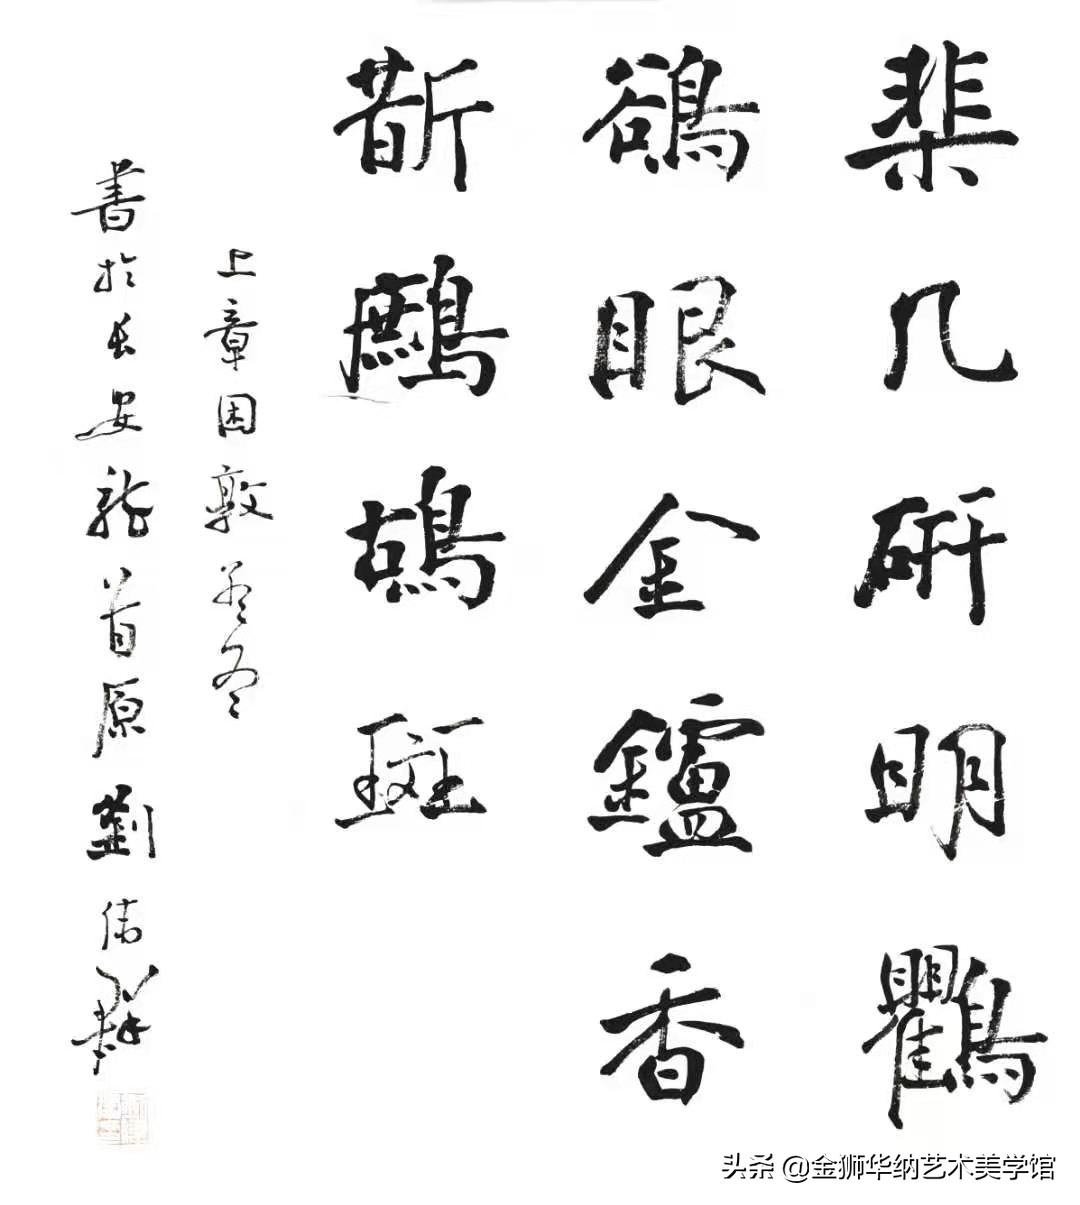 棐几研明鸜
鵒眼金鑪香
斮鷓鴣斑
上章困敦冬
書於長安龍首原劉偉
头条 @金狮华纳艺术美学馆